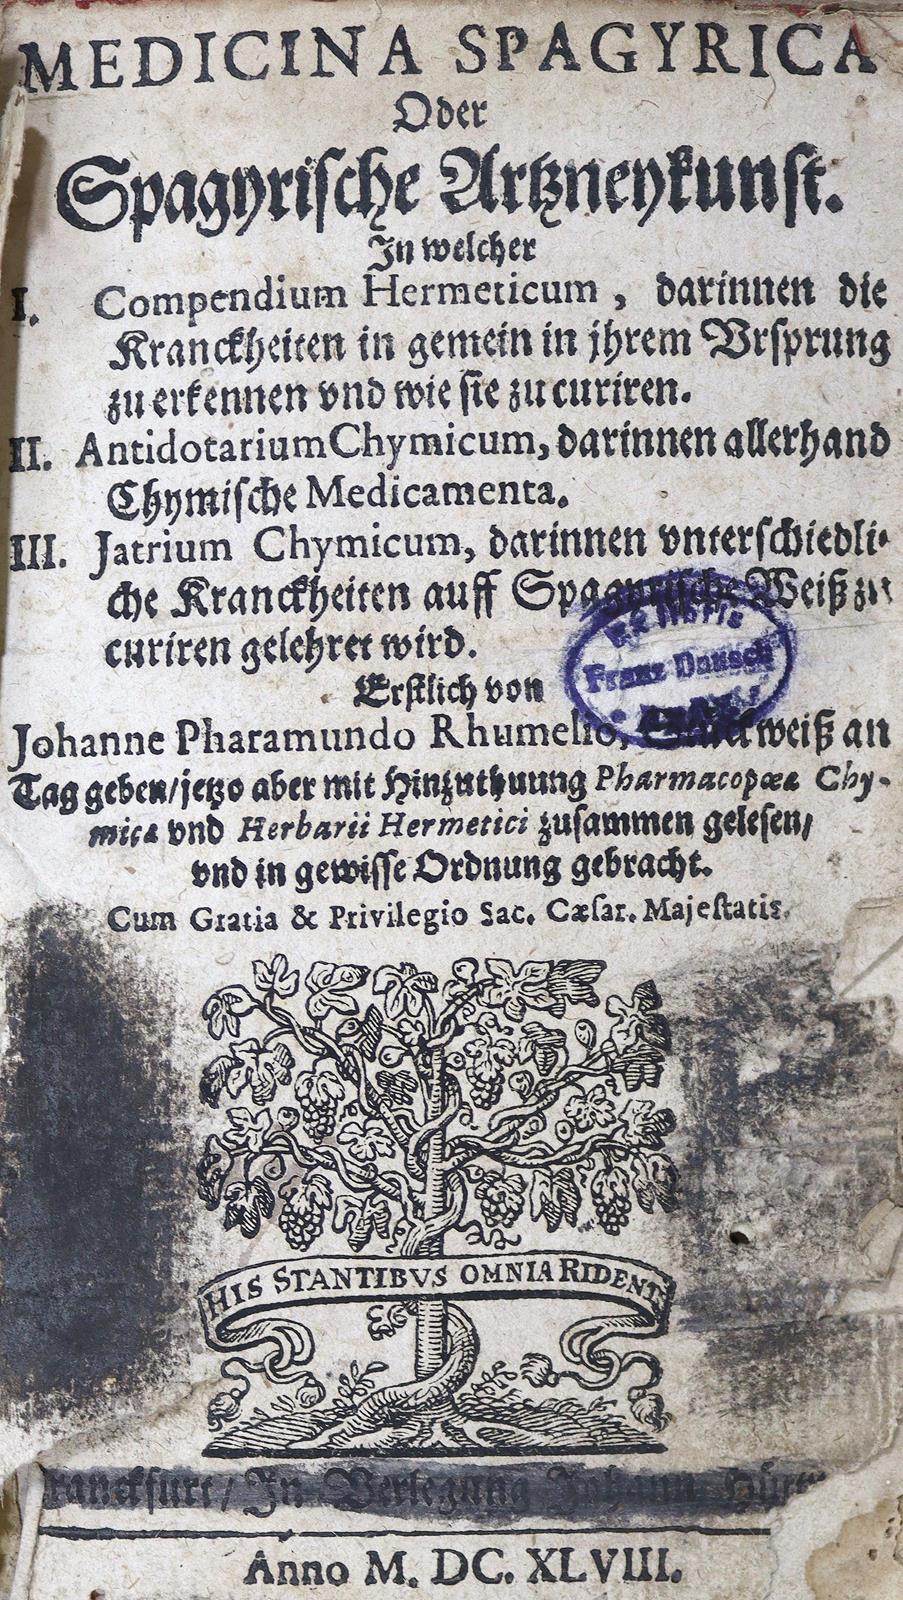 MEDICINA SPAGYRICA
Oder
Spagyrische Artzneykunst.
In welcher
I. Compendium Hermeticum, darinnen die
Kranckheiten in gemein in jhrem Vrsprung
zu erkennen vnd wie sie zu curiren.
II. Antidotarium Chymicum, darinnen allerhand
Chymische Medicamenta.
III. Jatrium Chymicum, darinnen vnterschiedli-
che Kranckheiten auff Spagyrische Weiß zu
curiren gelehret wird.
Exlibris
Franz
Erstlich von
Johanne Pharamundo Rhumelio, Stückweiß an
Tag geben/jetzo aber mit Hinzuthuung Pharmacopœa Chy-
mica vnd Herbarii Hermetici zusammen gelesen/
vnd in gewisse Ordnung gebracht.
Cum Gratia & Privilegio Sac. Cæsar. Majestatis.
HIS STANTIBVS OMNIA RIDENT.
Franckfurt/ In Verlegung Johann
Anno M. DC. XLVIII.